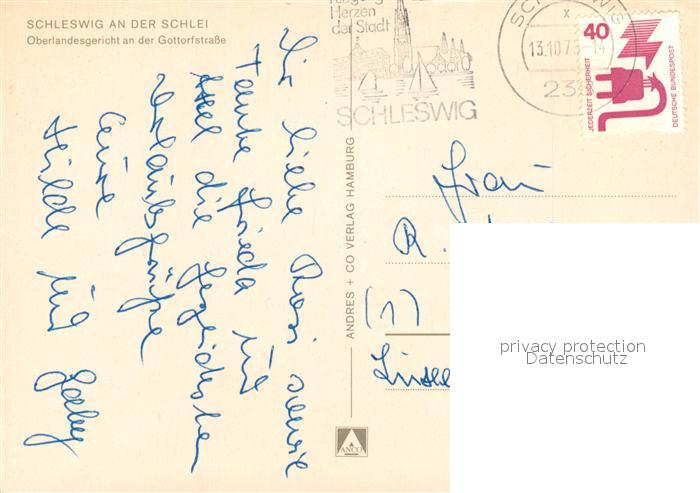 SCHLESWIG AN DER SCHLEI
Oberlandesgericht an der Gottorfstraße
Herzen
der Stadt
SCHLESWIG
SCHLESWIG
x
13.10.73-14
40
JEDERZEIT SICHERHEIT
DEUTSCHE BUNDESPOST
Dir liebe Rosi sowie
Tante Frieda und
die herzlichsten
Urlaubsgrüße
Eure
Hilde und
ANDRES + CO VERLAG HAMBURG
Frau
R.
(1)
ANCO
privacy protection
Datenschutz